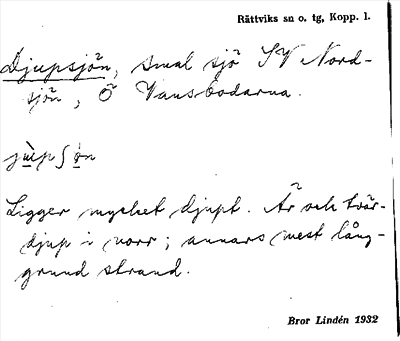 Rättviks sn o. tg, Kopp. l.
Djupsjön, smal sjö SV Nord-
sjön, Ö Vansbodarna.
Ligger mycket djupt. Är och tvär-
djup i norr; annars mest lång-
grund strand.
Bror Lindén 1932